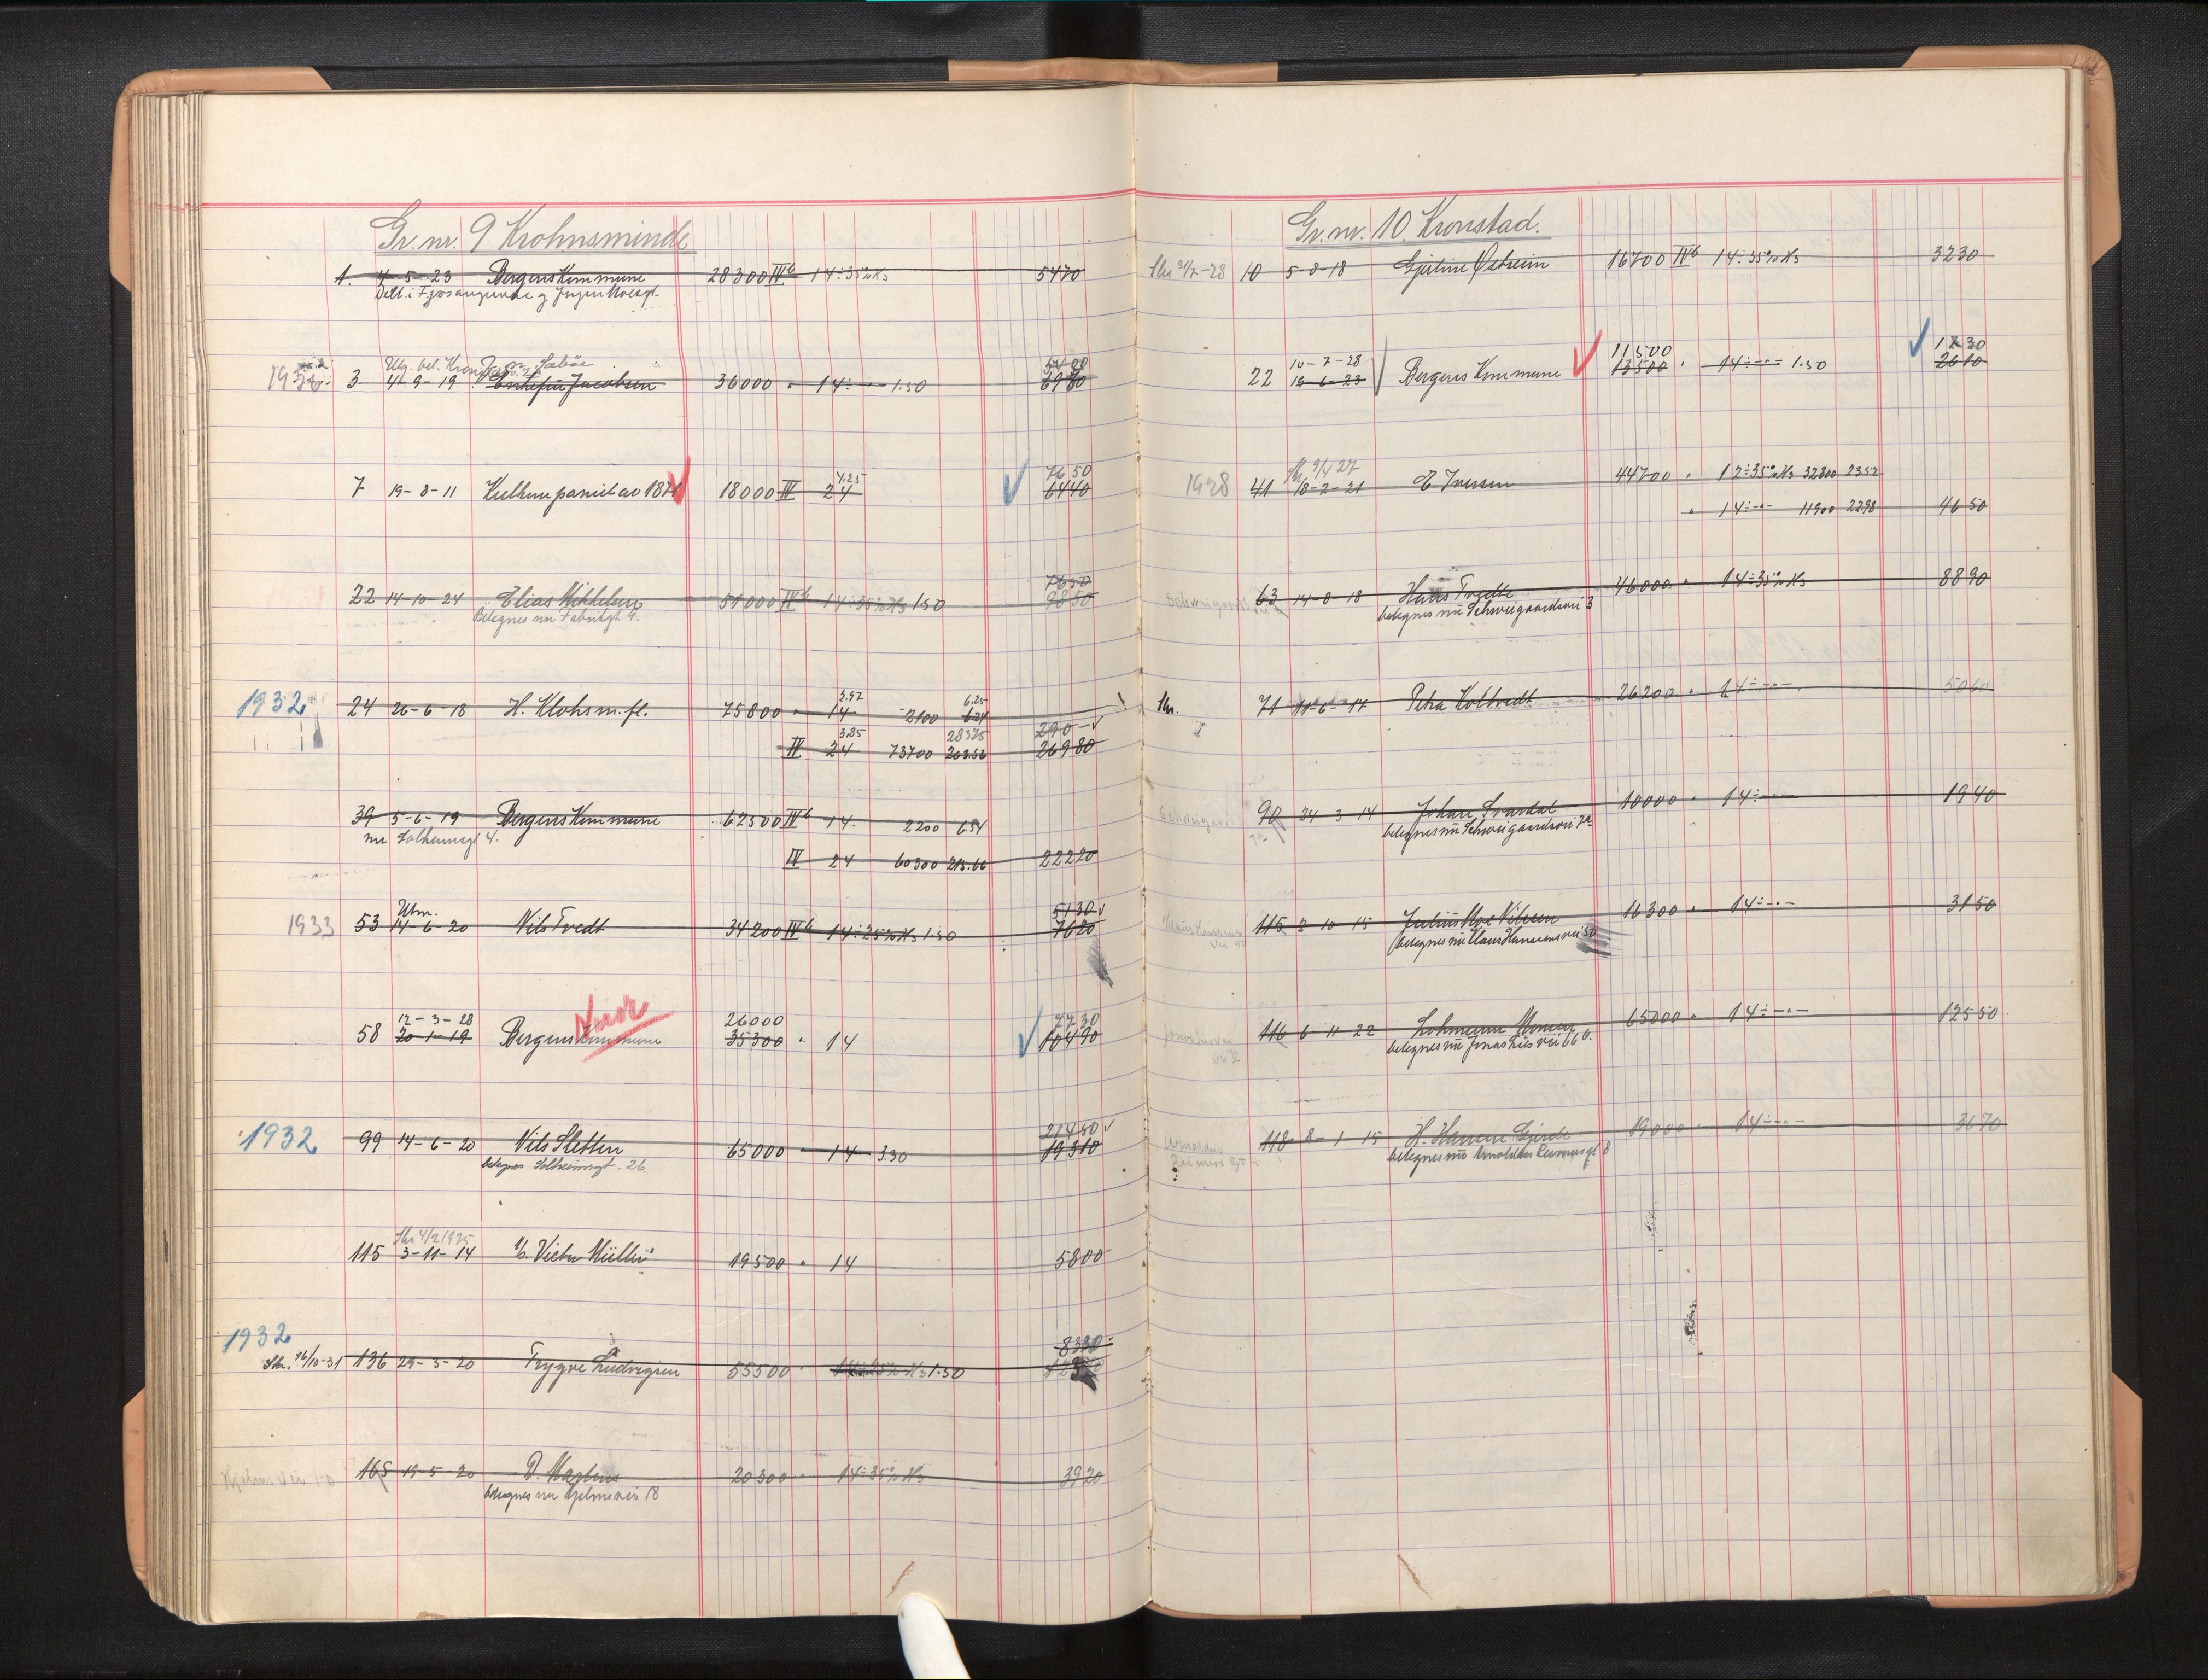 Gr. nr. 9 Krohnsminde
1. 4-5-23 Bergens Kommune 28300 IVb 14÷35%Ks 5470
Delt. i Fjøsangerveie g
3 4-9-19 Jacobsen 36000 " 14÷ 1.50 5400 6980
7 19-8-11 Kulkompaniet av 1871 18000 IV 4.25 24 7650 6440
22 14-10-24 Elias Mikkelsen 51000 IVb 14÷35%Ks 1.50 7650 9850
Betegnes nu Fabrikgt. 9.
1932 24 26-6-18 H. Klohs m. fl. 75800 " 2.97 14 2100 6.25 6.24
IV 3.85 24 73700 283.75 263.56 290 26980
39 5-6-19 Bergens Kommune 62500 IVb 14 2200 6.54
nu Solheimsgt 4.
IV 24 60300 215.66 22220
1933 53 Utm. 14-6-20 Nils Tvedt 34200 IVb 14÷25%Ks 1.50 5130 7620
58 12-3-28 20-1-19 Bergens Kommune 26000 35300 " 14 7730 10490
1932 99 14-6-20 Nils Sletten 65000 " 14 3.30 21450 19310
betegnes Solheimsgt. 26.
Skr 4/2 1925
115 3-11-14 A/S. Victor Müller 19500 " 14 5800
1932
Skr. 16/10-31 136 29-3-20 Trygve Ludvigsen 55500 " 1.50 8330
165 19-5-20 D. Magnus 20300 " 14÷35%Ks 3920
betegnes nu Hjelmsvei 18
Gr. nr. 10. Kronstad.
Skr 3/7-28 10 5-8-18 Gjertine Østreim 16700 IVb 14÷35%Ks 3230
22 10-7-28 19-6-23 Bergens Kommune 11500 13500 " 14÷ 1.50 1730 2610
1928 41 Skr 9/4 27 18-2-21 E. Iversen 44700 " 12÷35%Ks 32800 2352
" 14÷ 11900 2298 4650
63 14-8-18 Hans Tvedte 46000 " 14÷35%Ks 8890
betegnes nu Schweigaardsvei 3
Skr. 71 11-6-17 Petra Koltvedt 26200 " 14÷ 5060
90 24-3-14 Johan Svardal 10000 " 14÷ 1940
betegnes nu Schweigaardsvei 7a
Klaus Hanssens vei 50
115 2-10-15 Julius Moe Nilssen 16300 " 14÷ 3150
betegnes nu Claus Hanssens vei 50
116 6-11-22 Lohmann Monsen 65000 " 14÷ 12550
betegnes nu Jonas Lies vei 66b.
Arnoldus Reimers gt.
118 8-1-15 H. Hansen Gjerde 19000 " 14÷ 3670
betegnes nu Arnoldus Reimersgt 8